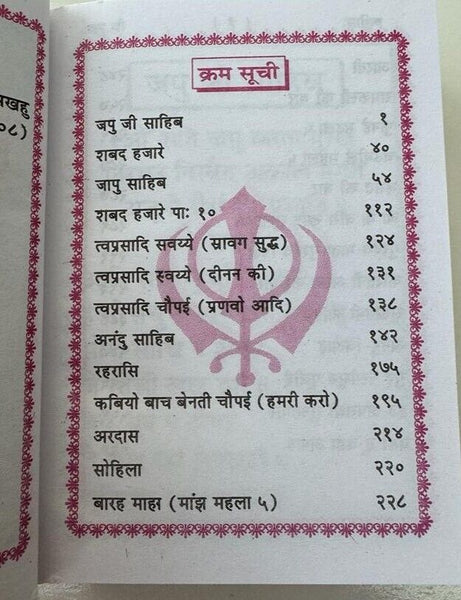 खहु
०८)
क्रम सूची
जपु जी साहिब १
शबद हजारे ४०
जापु साहिब ५४
शबद हजारे पाः १० ११२
त्वप्रसादि सवय्ये (स्रावग सुद्ध) १२४
त्वप्रसादि स्वय्ये (दीनन की) १३१
त्वप्रसादि चौपई (प्रणवो आदि) १३८
अनंदु साहिब १४२
रहरासि १७५
कबियो बाच बेनती चौपई (हमरी करो) १९५
अरदास २१४
सोहिला २२०
बारह माहा (मांझ महला ५) २२८